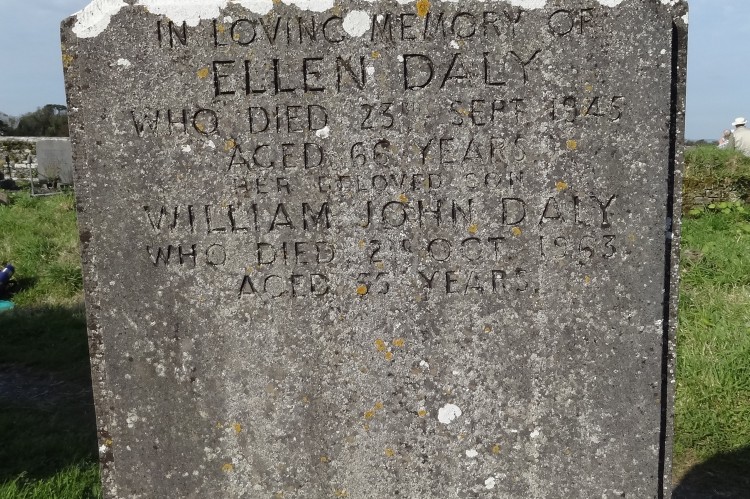 IN LOVING MEMORY OF
ELLEN DALY
WHO DIED SEPT. 1945
AGED YEARS
HER BELOVED SON
WILLIAM JOHN DALY
WHO DIED OCT. 1963
AGED YEARS